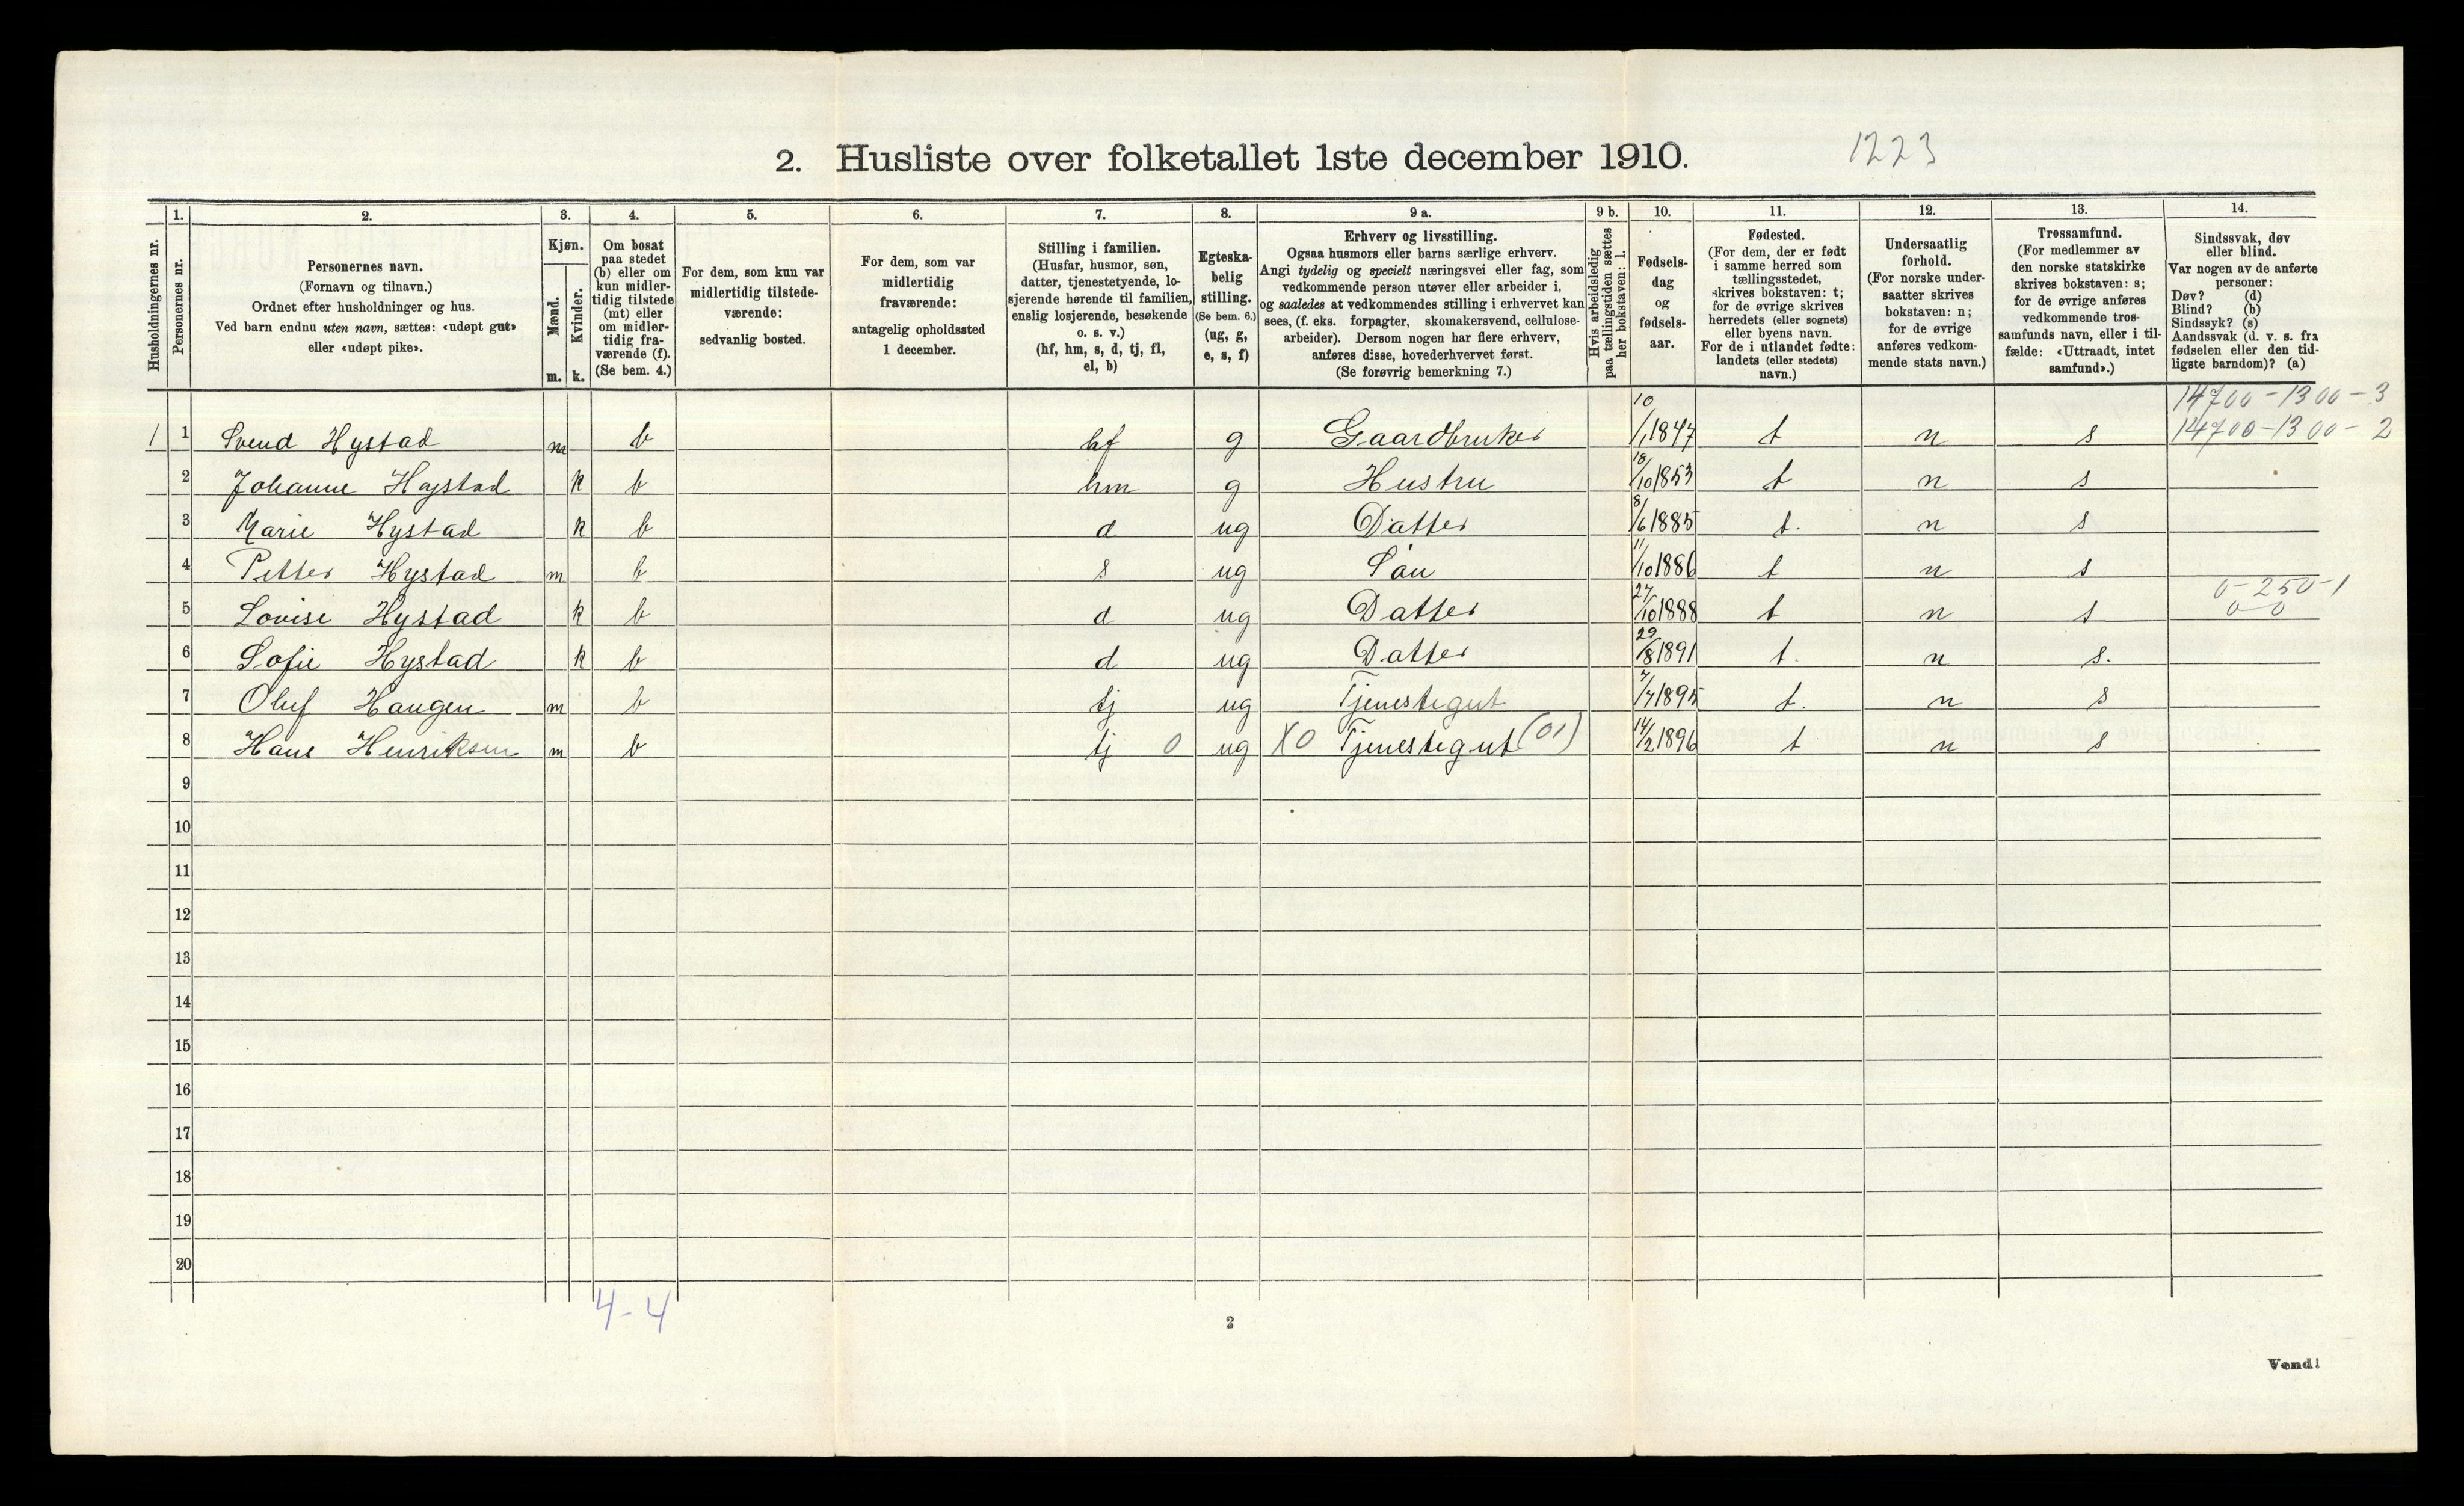 2. Husliste over folketallet 1ste december 1910.
1223
Husholdningernes nr.
1. Personernes nr.
2. Personernes navn. (Fornavn og tilnavn.) Ordnet efter husholdninger og hus. Ved barn endnu uten navn, sættes: «udøpt gut» eller «udøpt pike».
3. Kjøn. Mænd. m. Kvinder. k.
4. Om bosat paa stedet (b) eller om kun midlertidig tilstede (mt) eller om midlertidig fraværende (f). (Se bem. 4.)
5. For dem, som kun var midlertidig tilstedeværende: sedvanlig bosted.
6. For dem, som var midlertidig fraværende: antagelig opholdssted 1 december.
7. Stilling i familien. (Husfar, husmor, søn, datter, tjenestetyende, losjerende hørende til familien, enslig losjerende, besøkende o. s. v.) (hf, hm, s, d, tj, fl, el, b)
8. Egteskabelig stilling. (Se bem. 6.) (ug, g, e, s, f)
9 a. Erhverv og livsstilling. Ogsaa husmors eller barns særlige erhverv. Angi tydelig og specielt næringsvei eller fag, som vedkommende person utøver eller arbeider i, og saaledes at vedkommendes stilling i erhvervet kan sees, (f. eks. forpagter, skomakersvend, cellulosearbeider). Dersom nogen har flere erhverv, anføres disse, hovederhvervet først. (Se forøvrig bemerkning 7.)
9 b. Hvis arbeidsledig paa tællingstiden sættes her bokstaven: l.
10. Fødselsdag og fødselsaar.
11. Fødested. (For dem, der er født i samme herred som tællingsstedet, skrives bokstaven: t; for de øvrige skrives herredets (eller sognets) eller byens navn. For de i utlandet fødte: landets (eller stedets) navn.)
12. Undersaatlig forhold. (For norske undersaatter skrives bokstaven: n; for de øvrige anføres vedkommende stats navn.)
13. Trossamfund. (For medlemmer av den norske statskirke skrives bokstaven: s; for de øvrige anføres vedkommende trossamfunds navn, eller i tilfælde: «Uttraadt, intet samfund».)
14. Sindssvak, døv eller blind. Var nogen av de anførte personer: Døv? (d) Blind? (b) Sindssyk? (s) Aandssvak (d. v. s. fra fødselen eller den tidligste barndom)? (a)
14700-1300-3
1 1 Svend Hystad m b hf g Gaardbruker 10/1 1847 t n s 14700-1300-2
2 Johanne Hystad k b hm g Hustru 18/10 1853 t n s
3 Marie Hystad k b d ug Datter 8/6 1885 t. n s
4 Petter Hystad m b s ug Søn 11/10 1886 t n s
0-250-1
5 Lovise Hystad k b d ug Datter 27/10 1888 t n s 0-0
6 Sofie Hystad k b d ug Datter 29/8 1891 t. n s.
7 Oluf Haugen m b tj ug Tjenestegut 7/7 1895 t. n s
8 Hans Henriksen m b tj 0 ug X0 Tjenestegut (01) 14/2 1896 t n s
9
10
11
12
13
14
15
16
17
18
19
20
4-4
2
Vend!